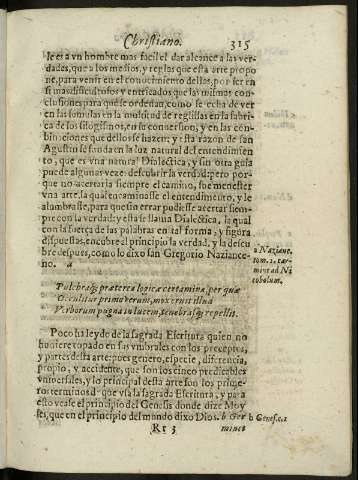 Christiano. 315
le es a vn hombre mas facil el dar alcance a las ver-
dades, que a los medios, y reglas que esta arte propo
ne, para venir en el conocimiento dellas, por ser en
si mas dificultosos y entricados que las mismas con-
clusiones para que se ordenan, como se echa de ver
en las sumulas en la multitud de reglillas en la fabri
ca de los silogismos, en su conuersion, y en las con-
binaciones que dellos se hazen: y esta razon de san
Agustin se funda en la luz natural del entendimien
to, que es vna natural Dialectica, y sin otra guia
puede algunas vezes descubrir la verdad: pero por-
que no acertaria siempre el camino, fue menester
vna arte, la qual encaminasse el entendimiento, y le
alumbrasse, para que sin errar pudiesse acertar siem-
pre con la verdad: y esta se llama Dialectica, la qual
con la fuerça de las palabras en tal forma, y figura
dispuestas, encubre al principio la verdad, y la descu
bre despues, como lo dixo san Gregorio Nazianze-
no.
a Nazianc.
tom. 2. car-
mine ad Ni
cobolum.
Pulchraq; præterea logicæ certamina, per quæ
Occulitur primo verum, mox eruit illud
Verborum pugna in lucem, tenebrasq; repellit.
Poco ha leydo de la sagrada Escritura quien no
huuiere topado en sus vmbrales con los preceptos,
y partes desta arte: pues genero, especie, diferencia,
propio, y accidente, que son los cinco predicables
vniuersales, y lo principal desta arte son los prime-
ros terminos de que vsa la sagrada Escritura, y para
esto vease el principio del Genesis donde dize Moy
ses, que en el principio del mundo dixo Dios. b Ger
b Genes. c. 1
Rr 3 minet